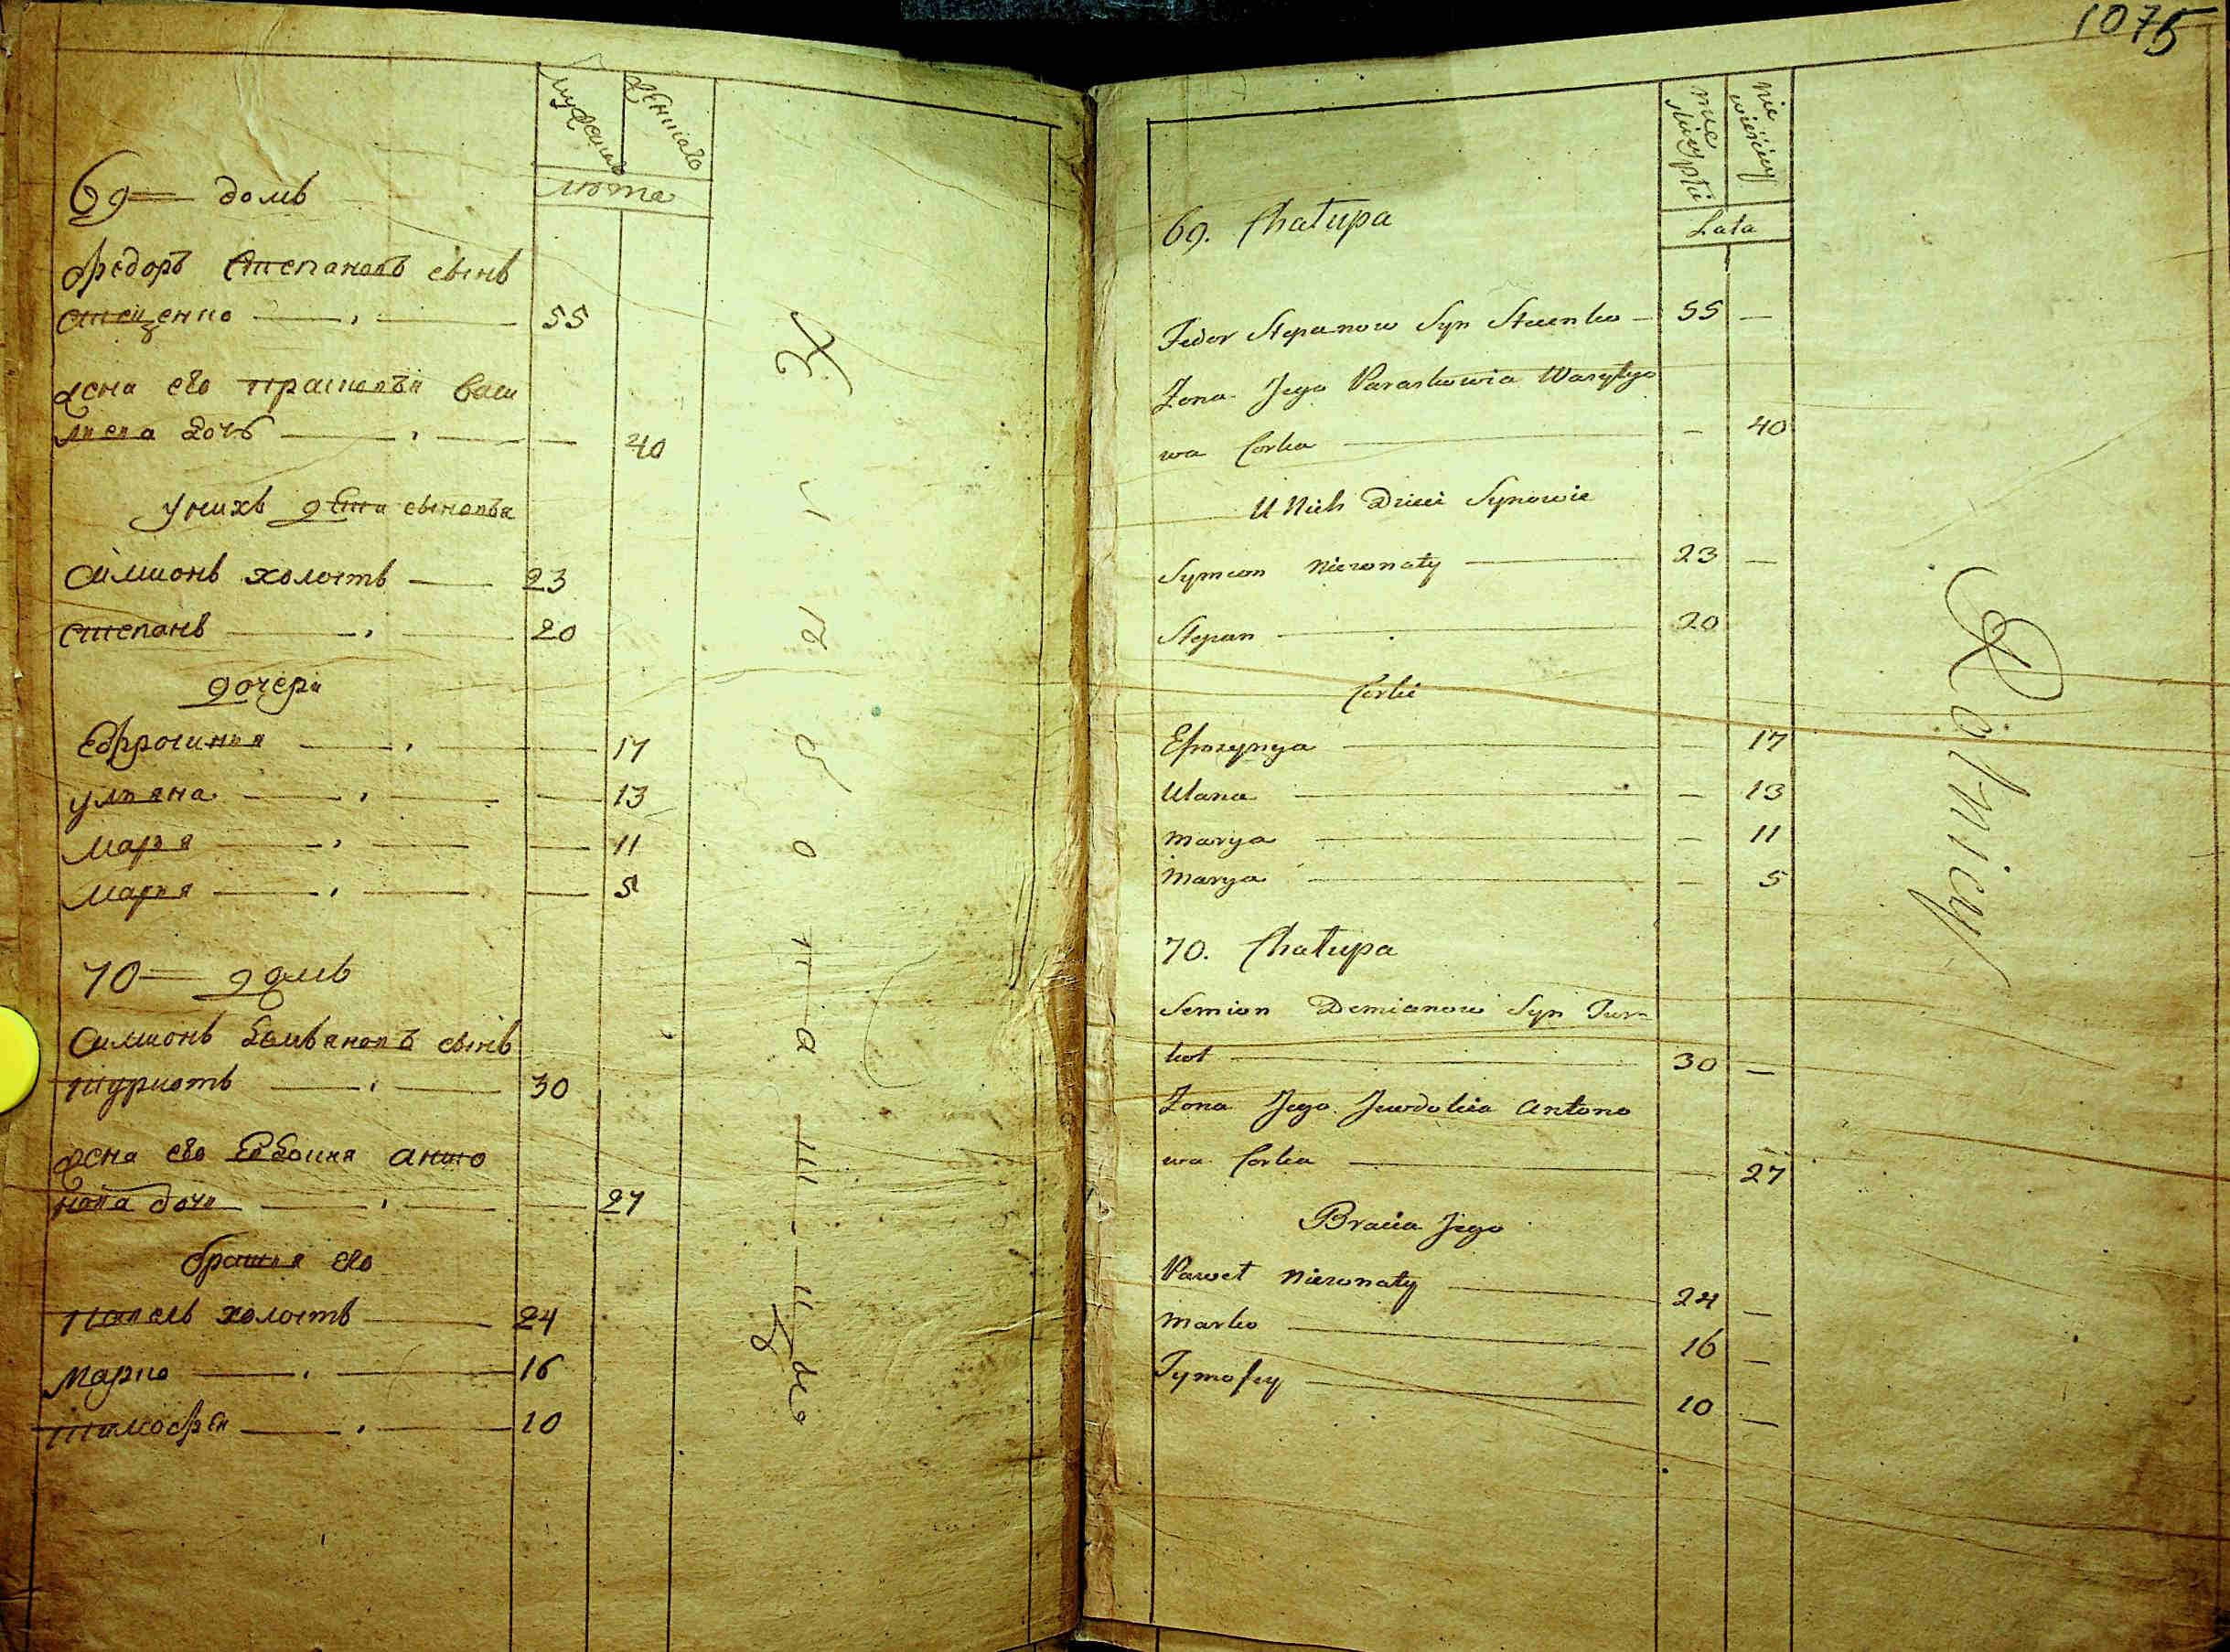 мужеска
женска
лѣта
69 домъ
Федоръ Степановъ сынъ
Стеценко 55
жена его Прасковѣя Васи
лиева дочь — 40
у нихъ дѣти сыновья
Симионъ холостъ 23
Степанъ 20
дочери
Ефросиния 17
Улияна 13
Маря 11
Мария 5
70 домъ
Симионъ Демьяновъ сынъ
Туркотъ 30
жена его Евдокия Анто
нова дочи 27
братия его
Павелъ холостъ 24
Марко 16
Тимофей 10
1075
męskiey płci
niewieściey
Lata
69. Chałupa
Fedor Stepanow Syn Stecenko — 55 —
Żona Jego Paraskowia Wasylyo
wa Corka — 40
U Nich Dzieci Synowie
Symeon Niezonaty 23 —
Stepan 20
Corki
Efrozynya 17
Ulana — 13
Marya — 11
Marya — 5
70. Chałupa
Semion Demianow Syn Tur
kot 30 —
Żona Jego Jewdokia Antono
wa Corka 27
Bracia Jego
Paweł Niezonaty 24 —
Marko 16 —
Tymofey 10 —
Rolnicy